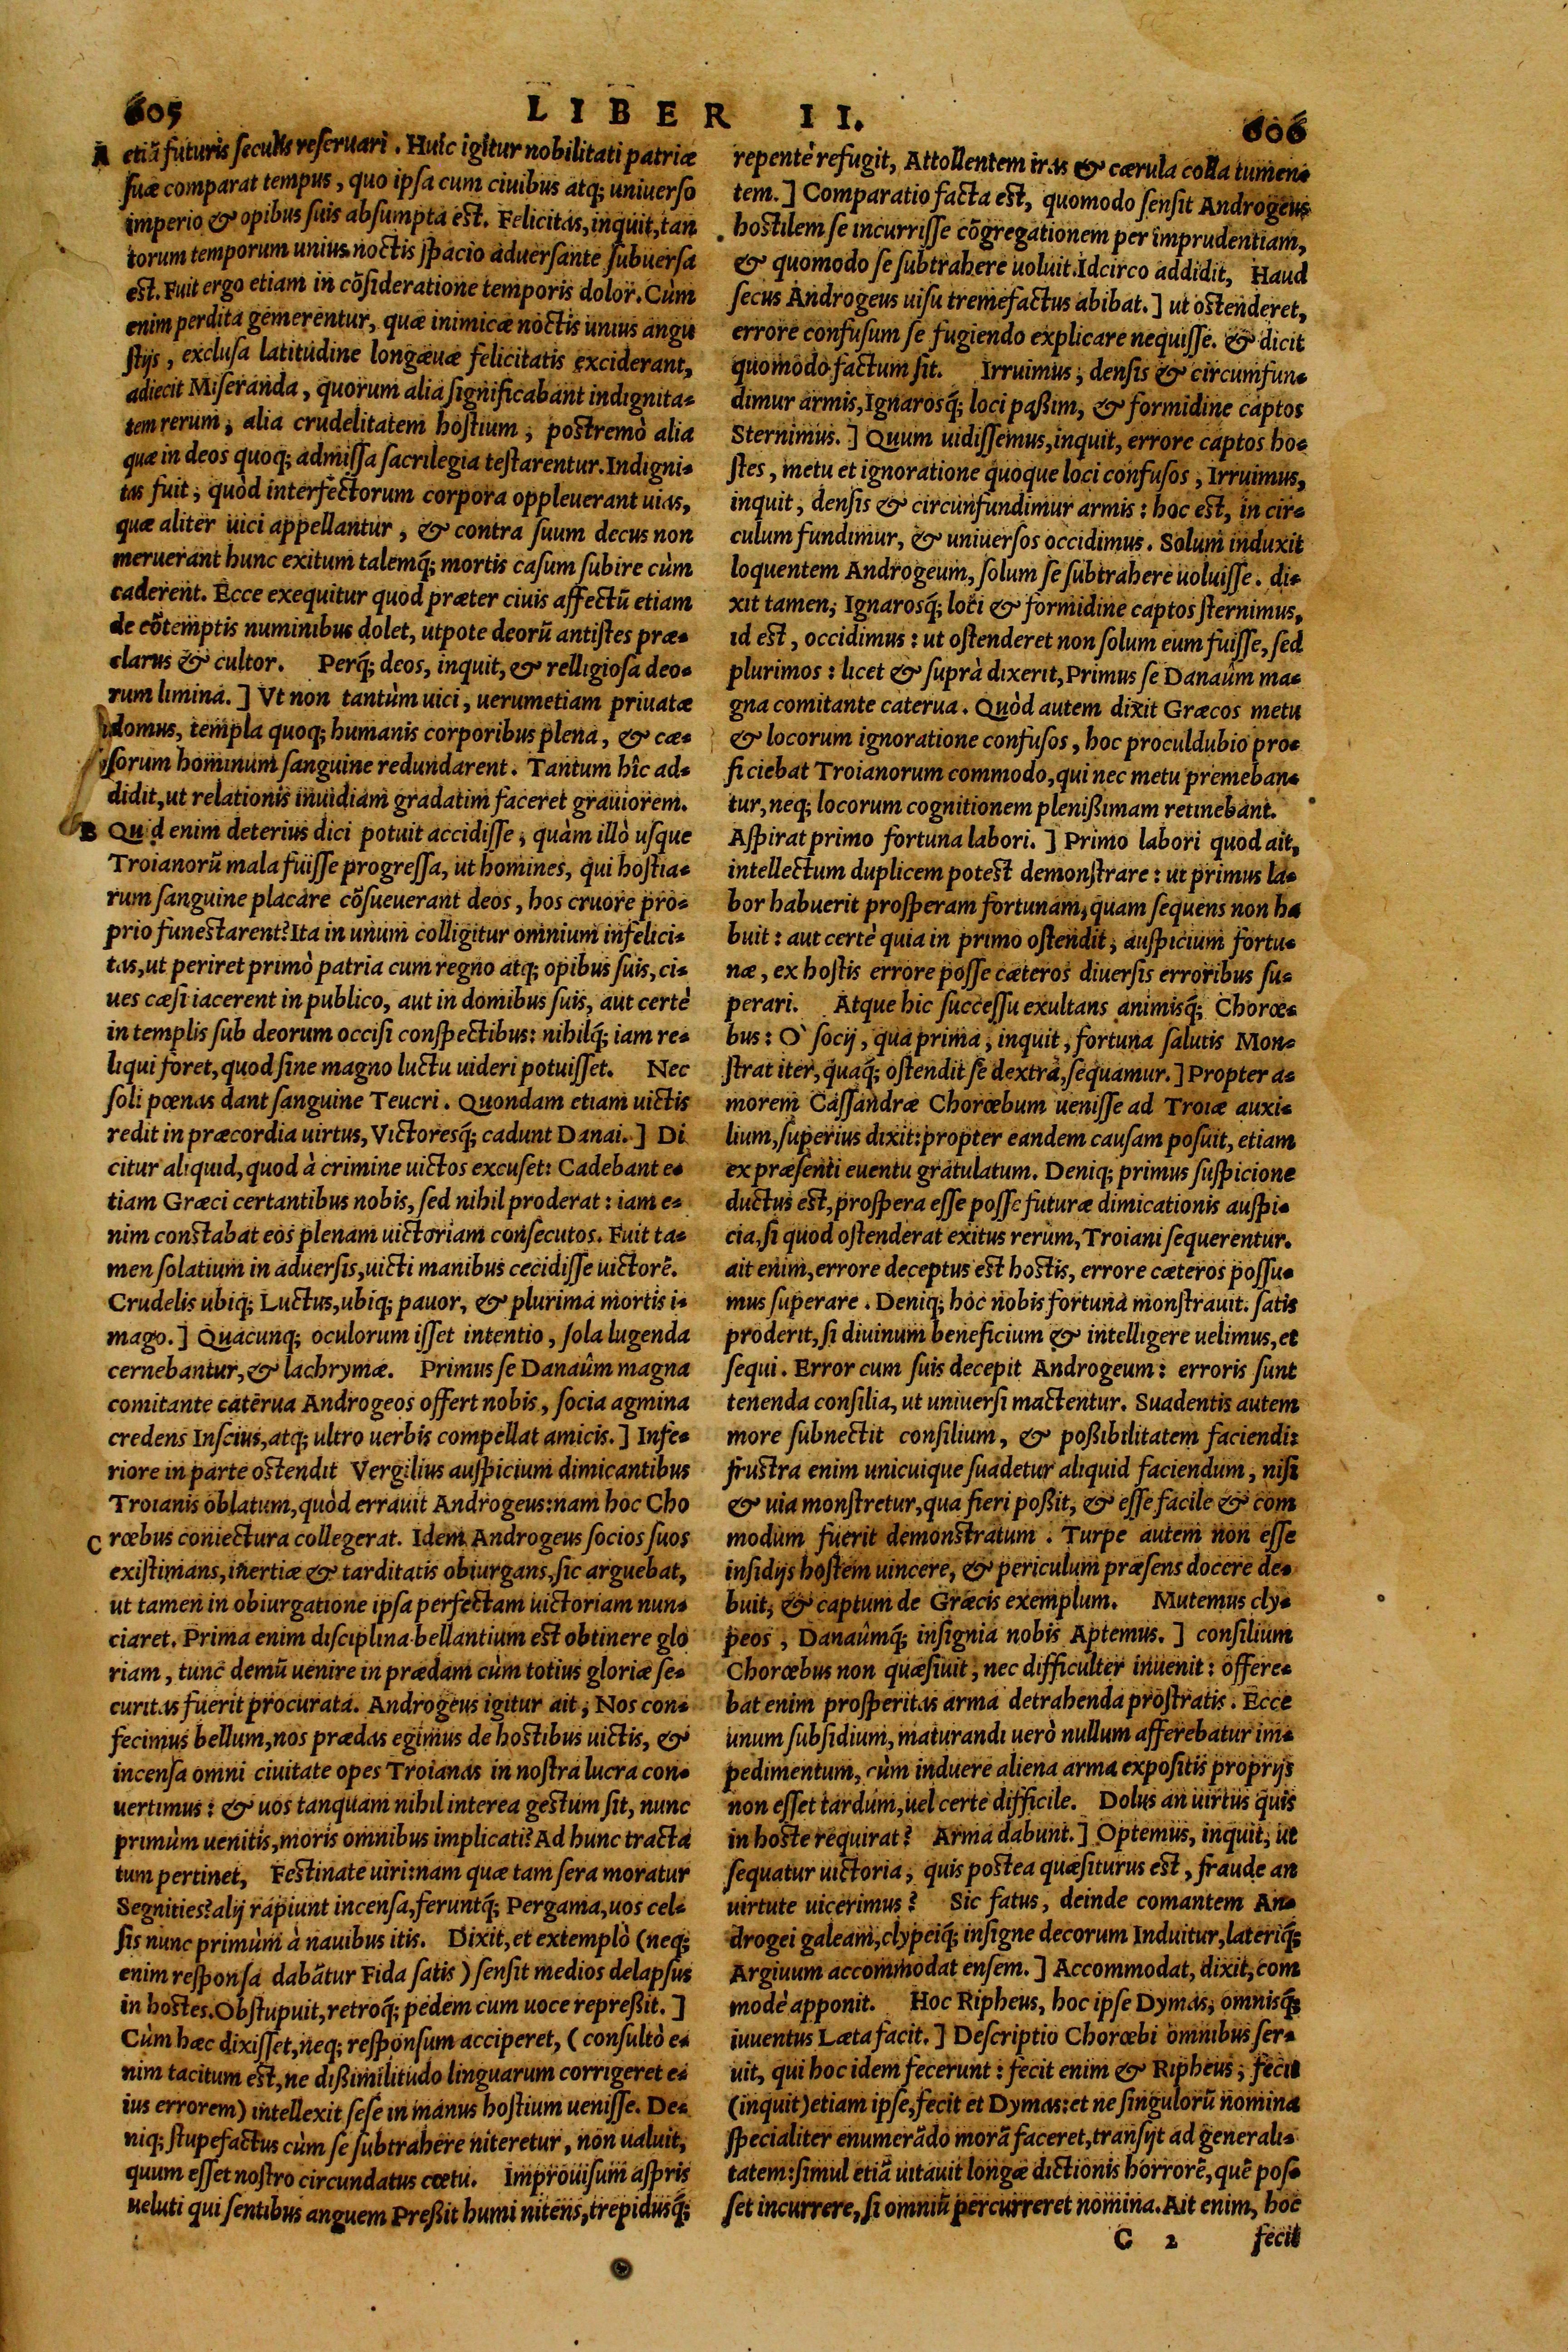 605
LIBER II.
606
A etiã futuris seculis reseruari. Huic igitur nobilitati patriæ
suæ comparat tempus, quo ipsa cum ciuibus atq; uniuerso
imperio & opibus suis absumpta est. Felicitas, inquit, tan
torum temporum unius noctis spacio aduersante subuersa
est. Fuit ergo etiam in cõsideratione temporis dolor. Cùm
enim perdita gemerentur, quæ inimicæ noctis unius angu
stijs, exclusa latitudine longæuæ felicitatis exciderant,
adiecit Miseranda, quorum alia significabant indignita-
tem rerum, alia crudelitatem hostium, postremò alia
quæ in deos quoq; admissa sacrilegia testarentur. Indigni-
tas fuit, quòd interfectorum corpora oppleuerant uias,
quæ aliter uici appellantur, & contra suum decus non
meruerant hunc exitum talemq́; mortis casum subire cùm
caderent. Ecce exequitur quod præter ciuis affectũ etiam
de cõtemptis numinibus dolet, utpote deorũ antistes præ-
clarus & cultor. Perq́; deos, inquit, & relligiosa deo-
rum limina.] Vt non tantùm uici, uerumetiam priuatæ
domus, templa quoq; humanis corporibus plena, & cæ-
sorum hominum sanguine redundarent. Tantum hîc ad-
didit, ut relationis inuidiam gradatim faceret grauiorem.
B Quid enim deterius dici potuit accidisse, quàm illò usque
Troianorũ mala fuisse progressa, ut homines, qui hostia-
rum sanguine placare cõsueuerant deos, hos cruore pro-
prio funestarent? Ita in unum colligitur omnium infelici-
tas, ut periret primò patria cum regno atq; opibus suis, ci-
ues cæsi iacerent in publico, aut in domibus suis, aut certè
in templis sub deorum occisi conspectibus: nihilq́; iam re-
liqui foret, quod sine magno luctu uideri potuisset. Nec
soli pœnas dant sanguine Teucri. Quondam etiam uictis
redit in præcordia uirtus, Victoresq́; cadunt Danai.] Di
citur aliquid, quod à crimine uictos excuset: Cadebant e-
tiam Græci certantibus nobis, sed nihil proderat: iam e-
nim constabat eos plenam uictoriam consecutos. Fuit ta-
men solatium in aduersis, uicti manibus cecidisse uictorẽ.
Crudelis ubiq; Luctus, ubiq; pauor, & plurima mortis i-
mago.] Quacunq; oculorum isset intentio, sola lugenda
cernebantur, & lachrymæ. Primus se Danaûm magna
comitante caterua Androgeos offert nobis, socia agmina
credens Inscius, atq; ultro uerbis compellat amicis.] Infe-
riore in parte ostendit Vergilius auspicium dimicantibus
Troianis oblatum, quòd errauit Androgeus: nam hoc Cho
C rœbus coniectura collegerat. Idem Androgeus socios suos
existimans, inertiæ & tarditatis obiurgans, sic arguebat,
ut tamen in obiurgatione ipsa perfectam uictoriam nun-
ciaret. Prima enim disciplina bellantium est obtinere glo
riam, tunc demũ uenire in prædam cùm totius gloriæ se-
curitas fuerit procurata. Androgeus igitur ait, Nos con-
fecimus bellum, nos prædas egimus de hostibus uictis, &
incensa omni ciuitate opes Troianas in nostra lucra con-
uertimus: & uos tanquam nihil interea gestum sit, nunc
primùm uenitis, moris omnibus implicati? Ad hunc tracta
tum pertinet, Festinate uiri: nam quæ tam sera moratur
Segnities? alij rapiunt incensa, feruntq́; Pergama, uos cel-
sis nunc primùm à nauibus itis. Dixit, et extemplò (neq;
enim responsa dabãtur Fida satis) sensit medios delapsus
in hostes. Obstupuit, retroq́; pedem cum uoce repreßit.]
Cùm hæc dixisset, neq; responsum acciperet, (consultò e-
nim tacitum est, ne dißimilitudo linguarum corrigeret e-
ius errorem) intellexit sese in manus hostium uenisse. De-
niq; stupefactus cùm se subtrahere niteretur, non ualuit,
quum esset nostro circundatus cœtu. Improuisum aspris
ueluti qui sentibus anguem Preßit humi nitens, trepidusq́;
repentè refugit, Attollentem iras & cærula colla tumen-
tem.] Comparatio facta est, quomodo sensit Androgeus
hostilem se incurrisse cõgregationem per imprudentiam,
& quomodo se subtrahere uoluit. Idcirco addidit, Haud
secus Androgeus uisu tremefactus abibat.] ut ostenderet,
errore confusum se fugiendo explicare nequisse. & dicit
quomodo factum sit. Irruimus, densis & circumfun-
dimur armis, Ignarosq́; loci paßim, & formidine captos
Sternimus.] Quum uidissemus, inquit, errore captos ho-
stes, metu et ignoratione quoque loci confusos, Irruimus,
inquit, densis & circunfundimur armis: hoc est, in cir-
culum fundimur, & uniuersos occidimus. Solum induxit
loquentem Androgeum, solum se subtrahere uoluisse. di-
xit tamen, Ignarosq́; loci & formidine captos sternimus,
id est, occidimus: ut ostenderet non solum eum fuisse, sed
plurimos: licet & suprà dixerit, Primus se Danaûm ma-
gna comitante caterua. Quòd autem dixit Græcos metu
& locorum ignoratione confusos, hoc proculdubio pro-
ficiebat Troianorum commodo, qui nec metu premeban-
tur, neq; locorum cognitionem plenißimam retinebant.
Aspirat primo fortuna labori.] Primo labori quod ait,
intellectum duplicem potest demonstrare: ut primus la-
bor habuerit prosperam fortunam, quam sequens non ha
buit: aut certè quia in primo ostendit, auspicium fortu-
næ, ex hostis errore posse cæteros diuersis erroribus su-
perari. Atque hic successu exultans animisq́; Chorœ-
bus: O` socij, qua prima, inquit, fortuna salutis Mon-
strat iter, quaq́; ostendit se dextra, sequamur.] Propter a-
morem Cassandræ Chorœbum uenisse ad Troiæ auxi-
lium, superius dixit: propter eandem causam posuit, etiam
ex præsenti euentu gratulatum. Deniq; primus suspicione
ductus est, prospera esse posse futuræ dimicationis auspi-
cia, si quod ostenderat exitus rerum, Troiani sequerentur.
ait enim, errore deceptus est hostis, errore cæteros possu-
mus superare. Deniq; hoc nobis fortuna monstrauit. satis
proderit, si diuinum beneficium & intelligere uelimus, et
sequi. Error cum suis decepit Androgeum: erroris sunt
tenenda consilia, ut uniuersi mactentur. Suadentis autem
more subnectit consilium, & poßibilitatem faciendi:
frustra enim unicuique suadetur aliquid faciendum, nisi
& uia monstretur, qua fieri poßit, & esse facile & com
modum fuerit demonstratum. Turpe autem non esse
insidijs hostem uincere, & periculum præsens docere de-
buit, & captum de Græcis exemplum. Mutemus cly-
peos, Danaûmq́; insignia nobis Aptemus.] consilium
Chorœbus non quæsiuit, nec difficulter inuenit: offere-
bat enim prosperitas arma detrahenda prostratis. Ecce
unum subsidium, maturandi uerò nullum afferebatur im-
pedimentum, cùm induere aliena arma expositis proprijs
non esset tardum, uel certe difficile. Dolus an uirtus quis
in hoste requirat? Arma dabunt.] Optemus, inquit, ut
sequatur uictoria, quis postea quæsiturus est, fraude an
uirtute uicerimus? Sic fatus, deinde comantem An-
drogei galeam, clypeiq́; insigne decorum Induitur, lateriq́;
Argiuum accommodat ensem.] Accommodat, dixit, com
modè apponit. Hoc Ripheus, hoc ipse Dymas, omnisq́;
iuuentus Læta facit.] Descriptio Chorœbi omnibus ser-
uit, qui hoc idem fecerunt: fecit enim & Ripheus, fecit
(inquit) etiam ipse, fecit et Dymas: et ne singulorũ nomina
specialiter enumerãdo morã faceret, transijt ad generali-
tatem: simul etiã uitauit longæ dictionis horrorẽ, quẽ pos-
set incurrere, si omniũ percurreret nomina. Ait enim, hoc
C 2 fecit